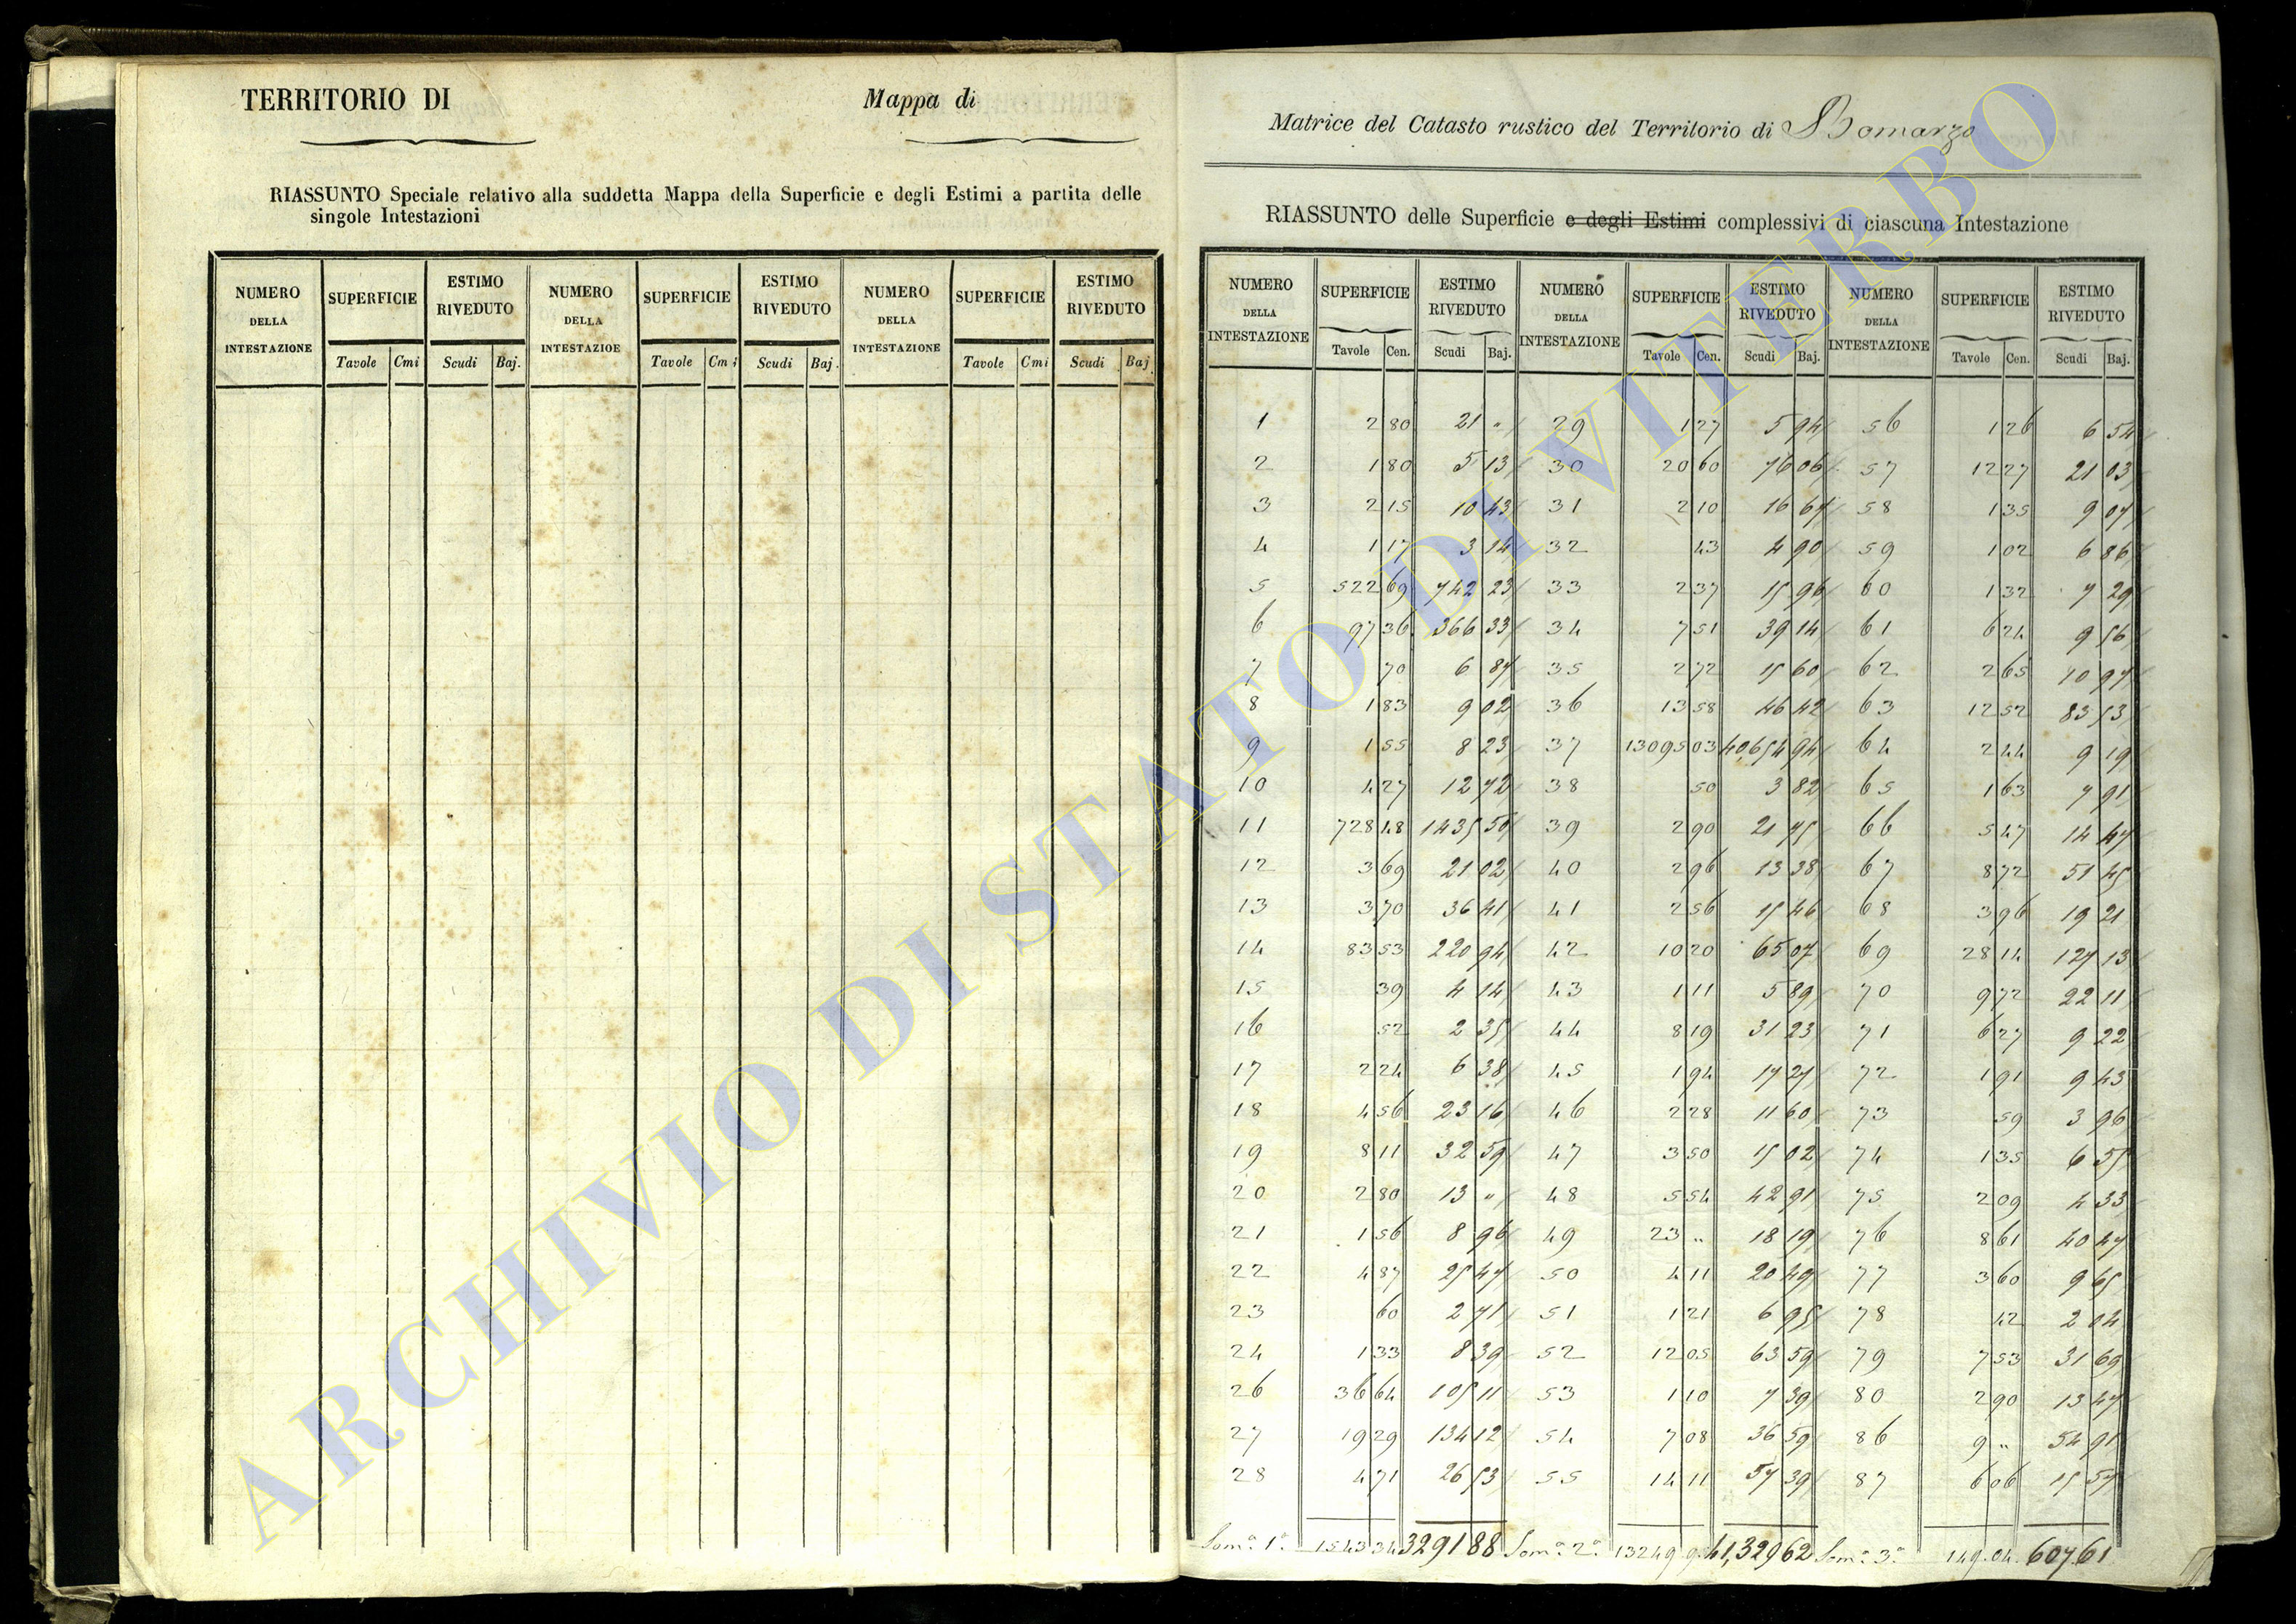 TERRITORIO DI Mappa di
RIASSUNTO Speciale relativo alla suddetta Mappa della Superficie e degli Estimi a partita delle
singole Intestazioni
NUMERO DELLA INTESTAZIONE SUPERFICIE ESTIMO RIVEDUTO NUMERO DELLA INTESTAZIOE SUPERFICIE ESTIMO RIVEDUTO NUMERO DELLA INTESTAZIONE SUPERFICIE ESTIMO RIVEDUTO
Tavole Cmi Scudi Baj. Tavole Cmi Scudi Baj. Tavole Cmi Scudi Baj.
Matrice del Catasto rustico del Territorio di Bomarzo
RIASSUNTO delle Superficie e degli Estimi complessivi di ciascuna Intestazione
NUMERO DELLA INTESTAZIONE SUPERFICIE ESTIMO RIVEDUTO NUMERO DELLA INTESTAZIONE SUPERFICIE ESTIMO RIVEDUTO NUMERO DELLA INTESTAZIONE SUPERFICIE ESTIMO RIVEDUTO
Tavole Cen. Scudi Baj. Tavole Cen. Scudi Baj. Tavole Cen. Scudi Baj.
1 2 80 21 " 29 1 27 5 94 56 1 26 6 54
2 1 80 5 13 30 20 60 76 06 57 12 27 21 03
3 2 15 10 43 31 2 10 16 67 58 1 35 9 07
4 1 17 3 14 32 43 4 90 59 1 02 6 86
5 522 69 742 23 33 2 37 15 96 60 1 32 7 29
6 97 36 366 33 34 7 51 39 14 61 6 24 9 56
7 70 6 87 35 2 72 15 60 62 2 65 10 97
8 1 83 9 02 36 13 58 46 42 63 12 52 83 53
9 1 55 8 23 37 13095 03 40,654 94 64 2 44 9 19
10 4 27 12 72 38 50 3 82 65 1 63 7 91
11 728 48 1435 50 39 2 90 21 75 66 5 47 14 47
12 3 69 21 02 40 2 96 13 38 67 8 72 51 45
13 3 70 36 41 41 2 56 15 46 68 3 96 19 21
14 83 53 220 94 42 10 20 65 07 69 28 14 127 13
15 39 4 14 43 1 11 5 89 70 9 72 22 11
16 52 2 35 44 8 19 31 23 71 6 27 9 22
17 2 24 6 38 45 1 94 17 27 72 1 91 9 43
18 4 56 23 16 46 2 28 11 60 73 59 3 96
19 8 11 32 59 47 3 50 15 02 74 1 35 6 55
20 2 80 13 " 48 5 54 42 91 75 2 09 4 33
21 1 56 8 96 49 23 " 18 19 76 8 61 40 47
22 4 87 25 47 50 4 11 20 49 77 3 60 9 65
23 60 2 71 51 1 21 6 95 78 42 2 04
24 1 33 8 39 52 12 05 63 59 79 7 53 31 69
26 36 64 105 11 53 1 10 7 39 80 2 90 13 47
27 19 29 134 12 54 7 08 36 59 86 9 " 54 91
28 4 71 26 53 55 14 11 57 39 87 6 06 15 57
Som.a 1.a 1543 34 3291 88 Som.a 2.a 13249 41,329 62 Som.a 3.a 149.04 607 61
ARCHIVIO DI STATO DI VITERBO